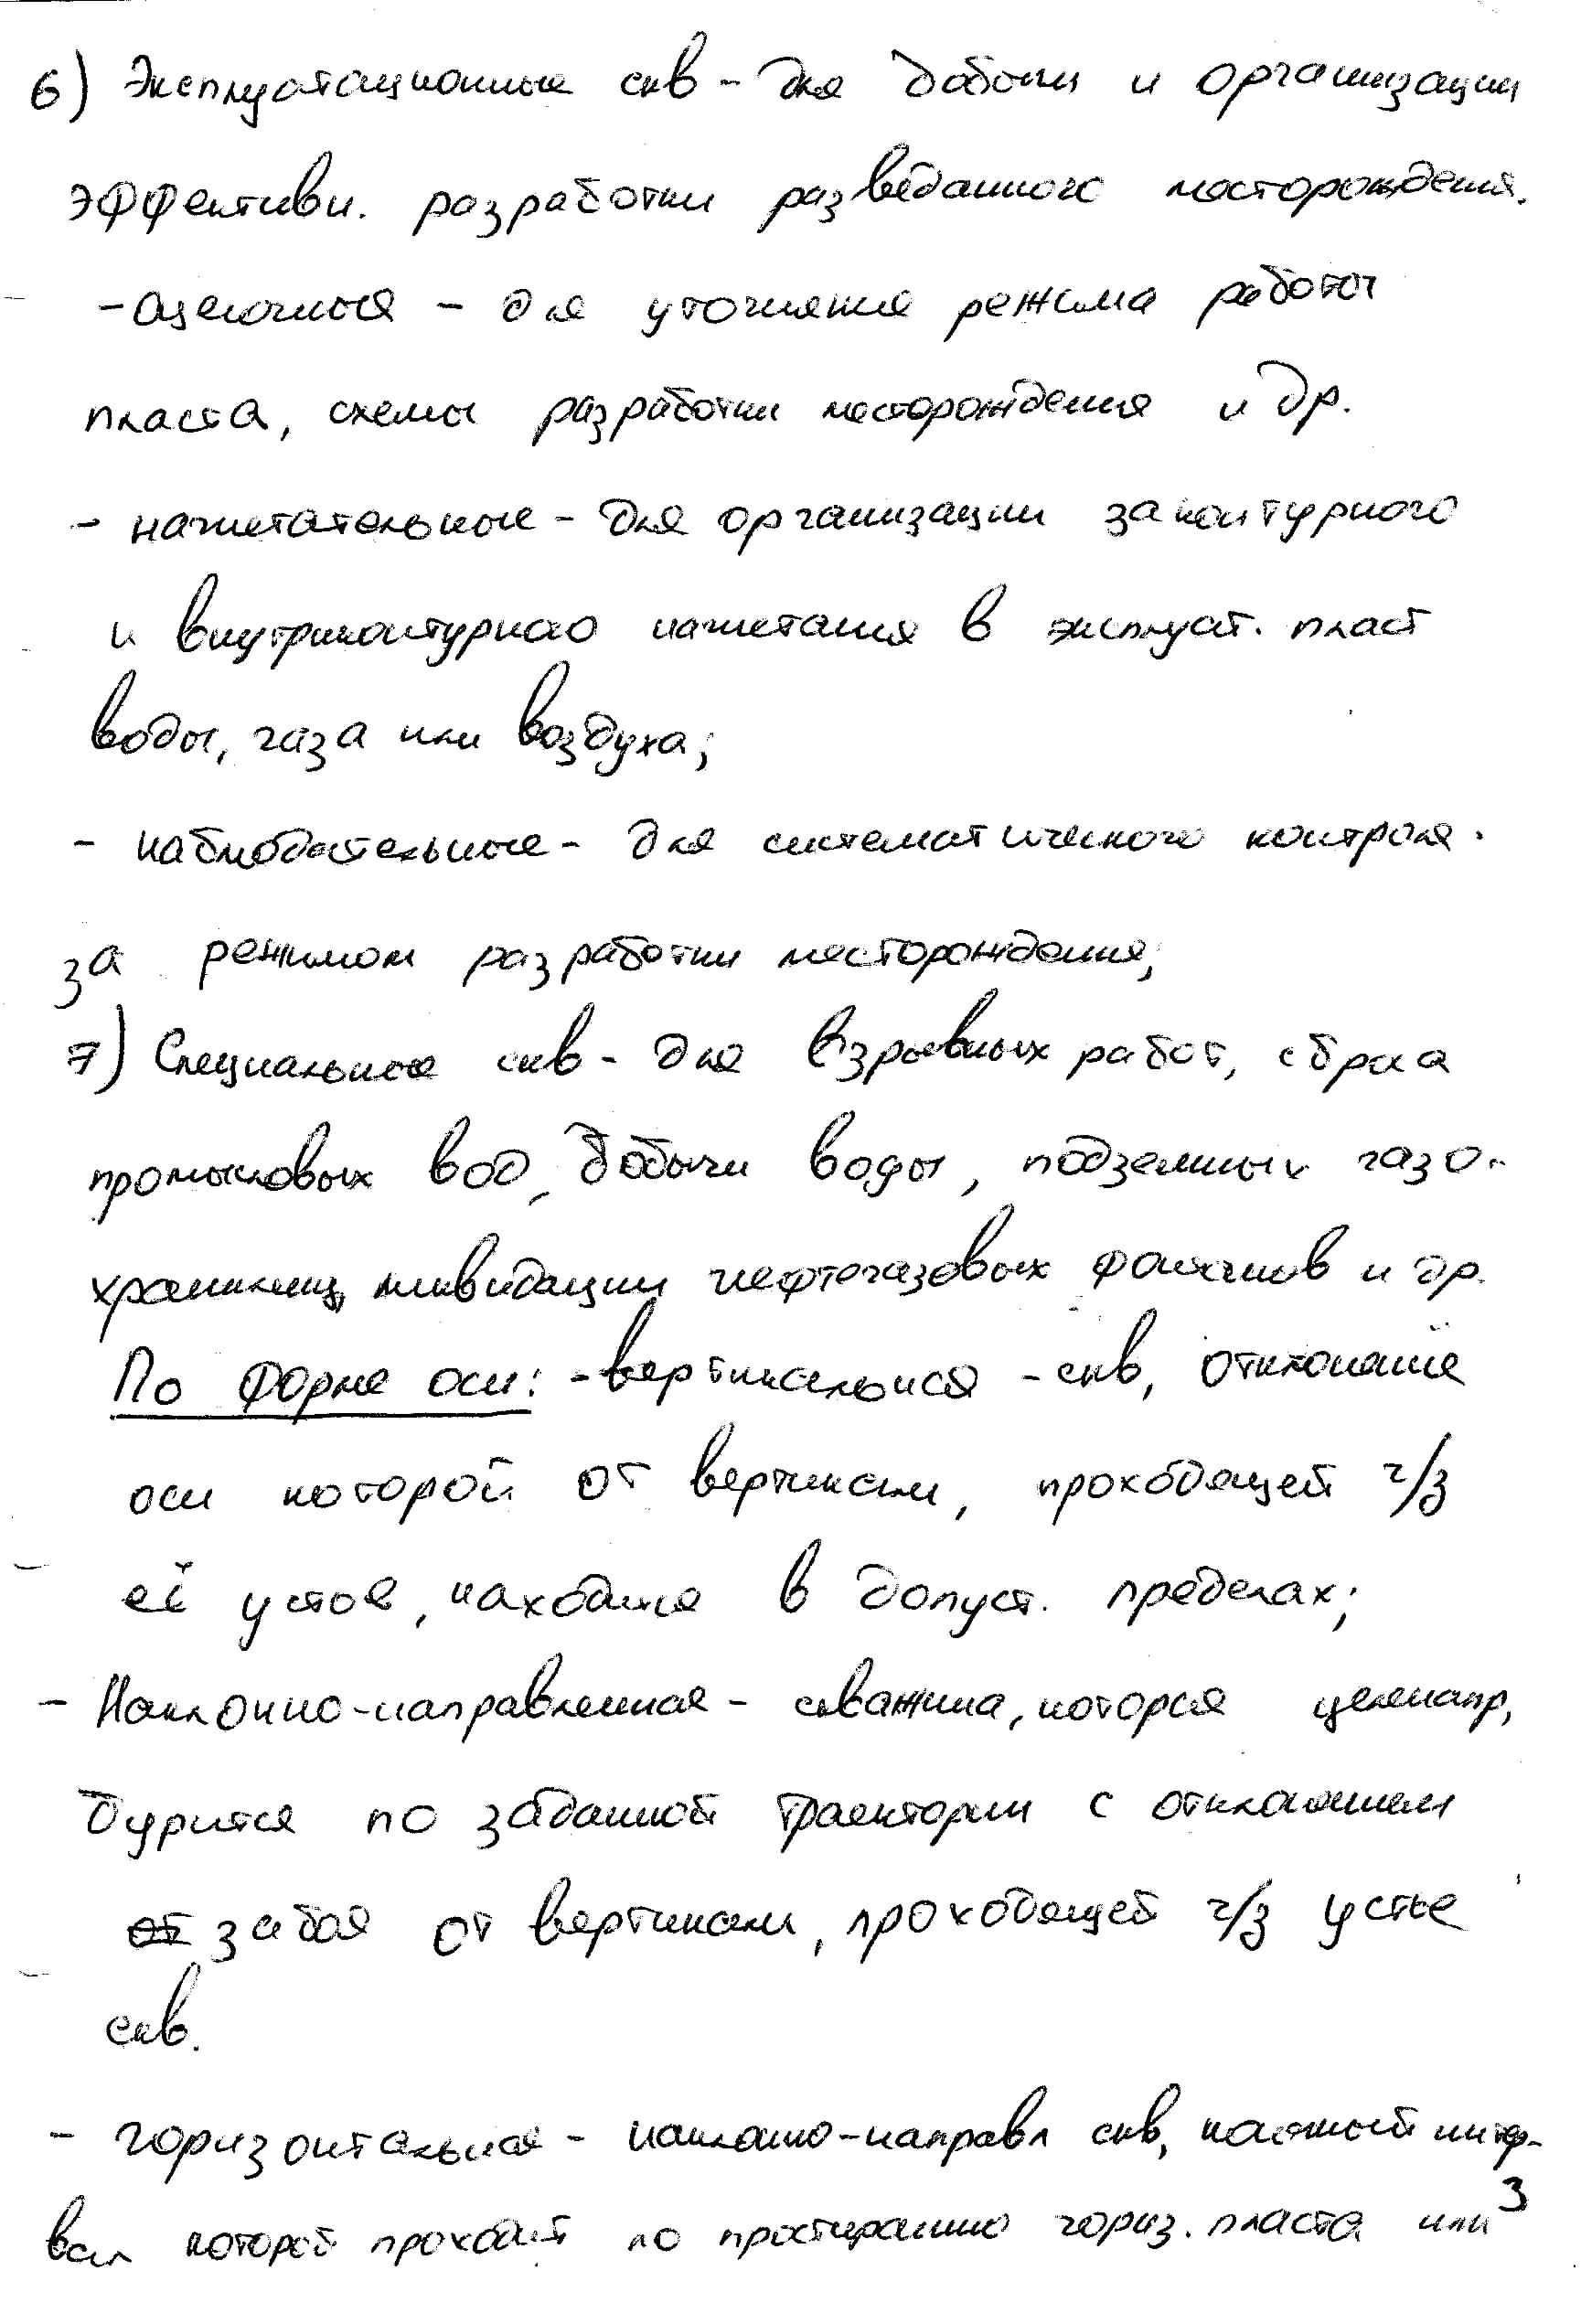 6) Эксплуатационные скв - для добычи и организации
эффективн. разработки разведанного месторождения.
- оценочные - для уточнения режима работы
пласта, схемы разработки месторождения и др.
- нагнетательные - для организации законтурного
и внутриконтурного нагнетания в эксплуат. пласт
воды, газа или воздуха;
- наблюдательные - для систематического контроля
за режимом разработки месторождения;
7) Специальные скв - для взрывных работ, сброса
промысловых вод, добычи воды, подземных газо-
хранилищ, ликвидации нефтегазовых фонтанов и др.
По форме оси: - вертикальная - скв, отклонение
оси которой от вертикали, проходящей ч/з
её устье, находится в допуст. пределах;
- Наклонно-направленная - скважина, которая целенапр.
бурится по заданной траектории с отклонением
от забоя от вертикали, проходящей ч/з устье
скв.
- горизонтальная - наклонно-направл скв, интер-
вал которой проходит по простиранию гориз. пласта или
3